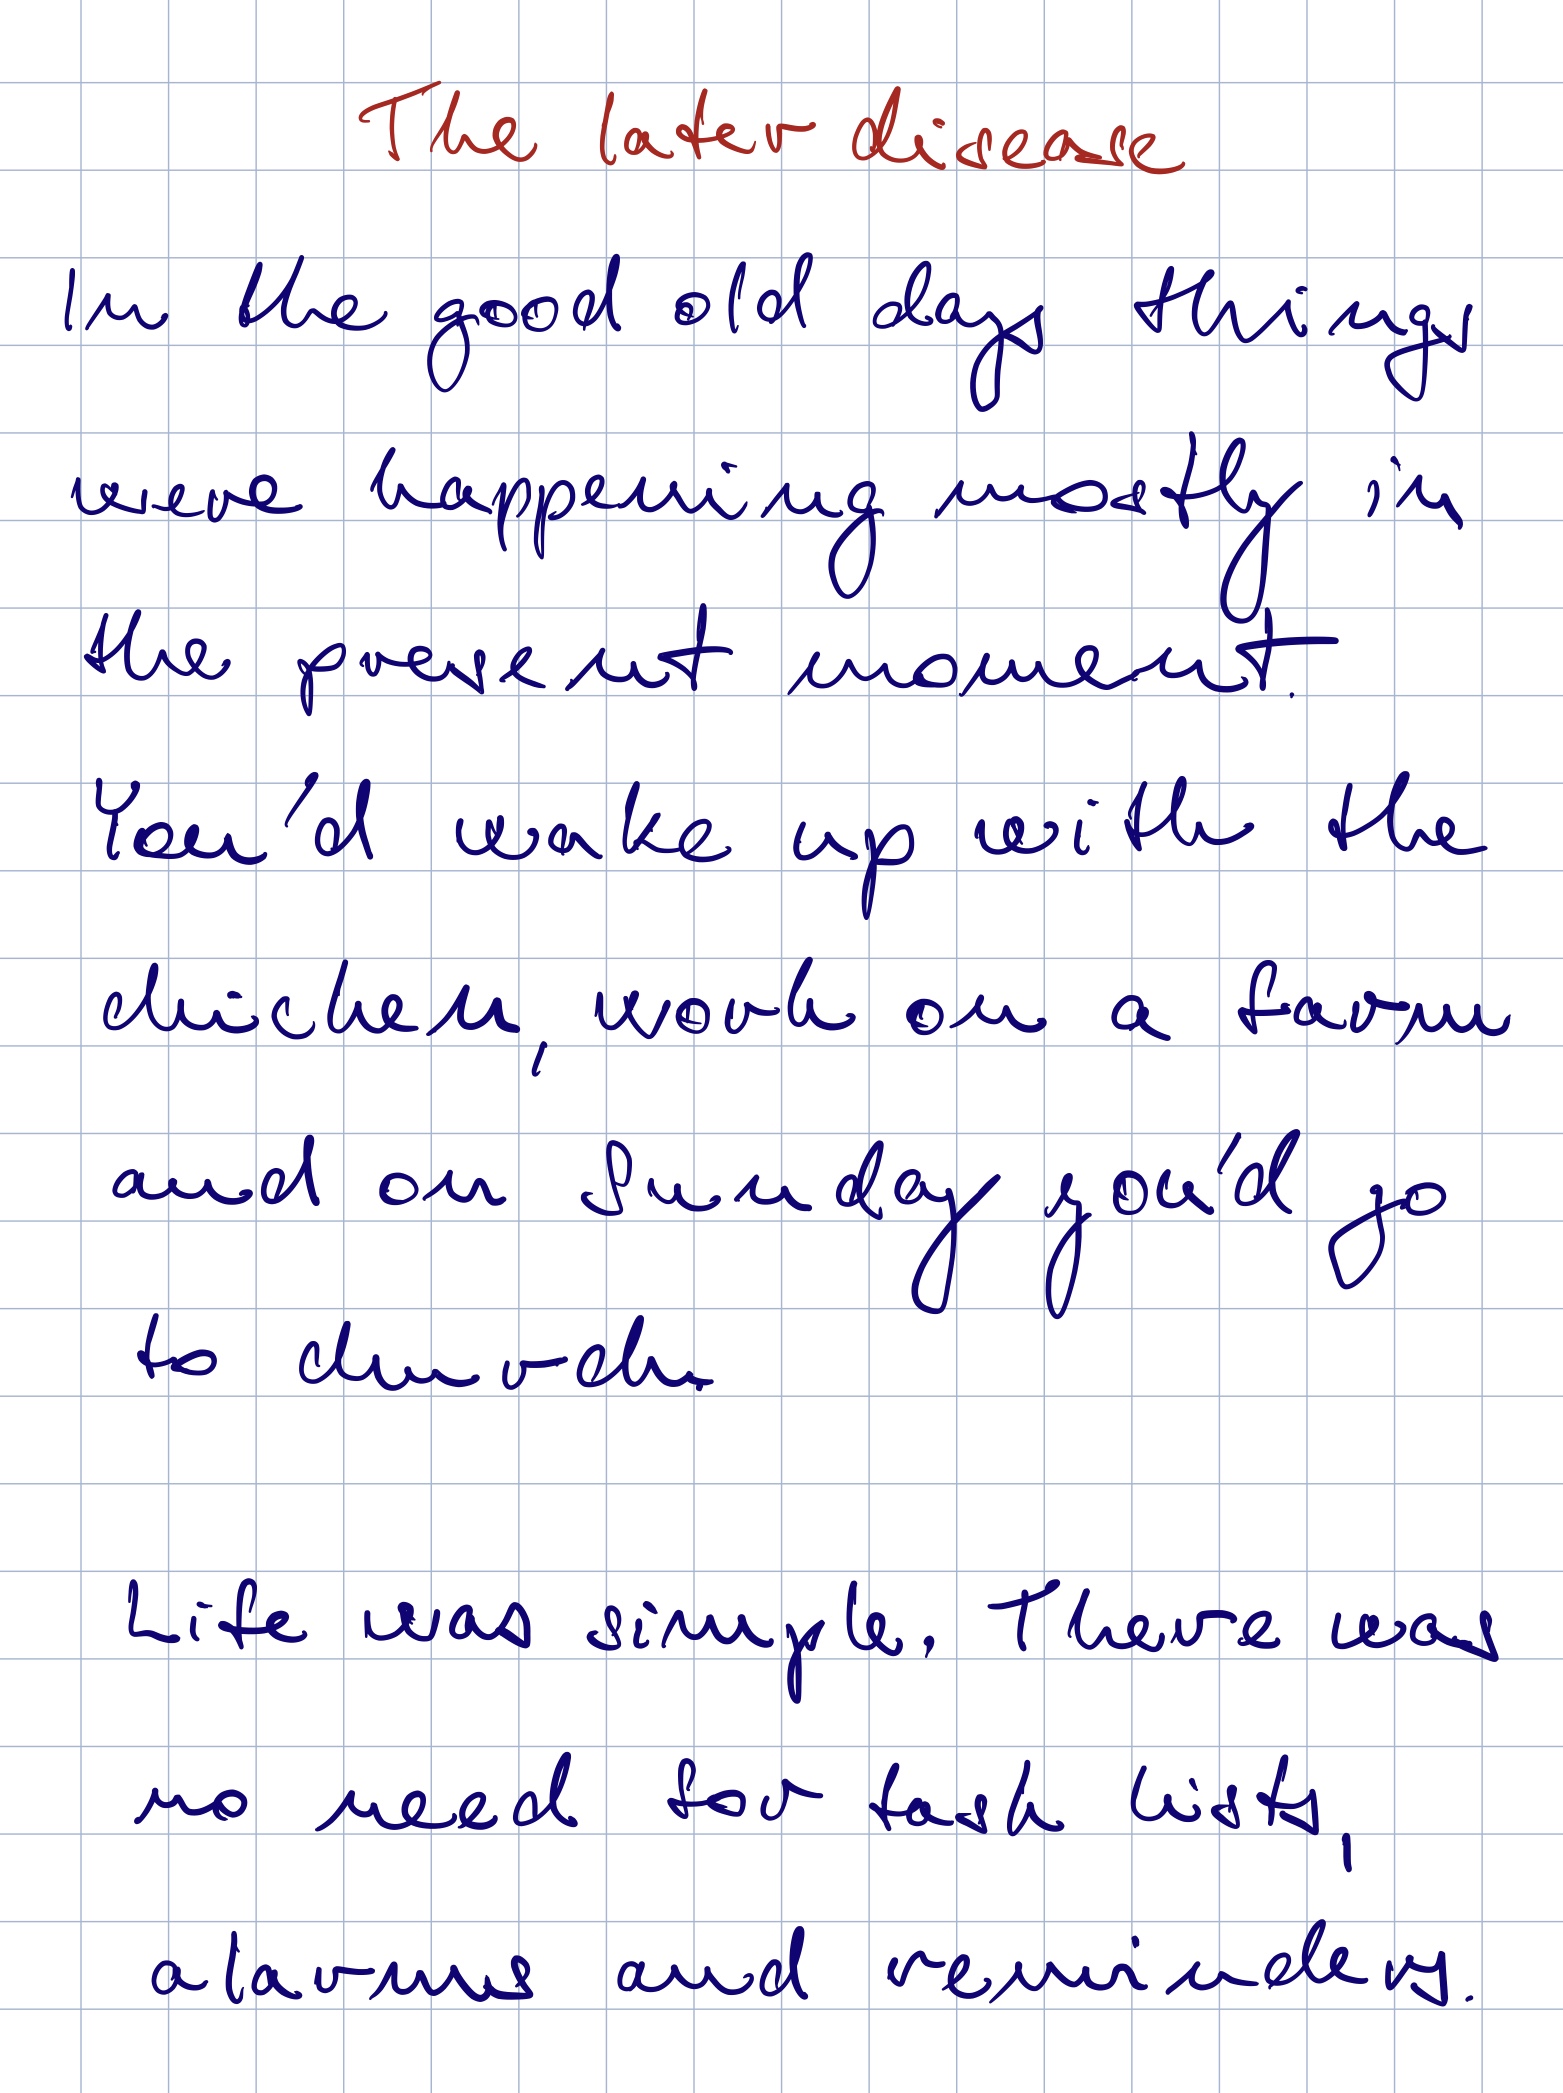 The later disease
In the good old days things
were happening mostly in
the present moment.
You'd wake up with the
chicken, work on a farm
and on Sunday you'd go
to church.
Life was simple. There was
no need for task lists,
alarms and reminders.